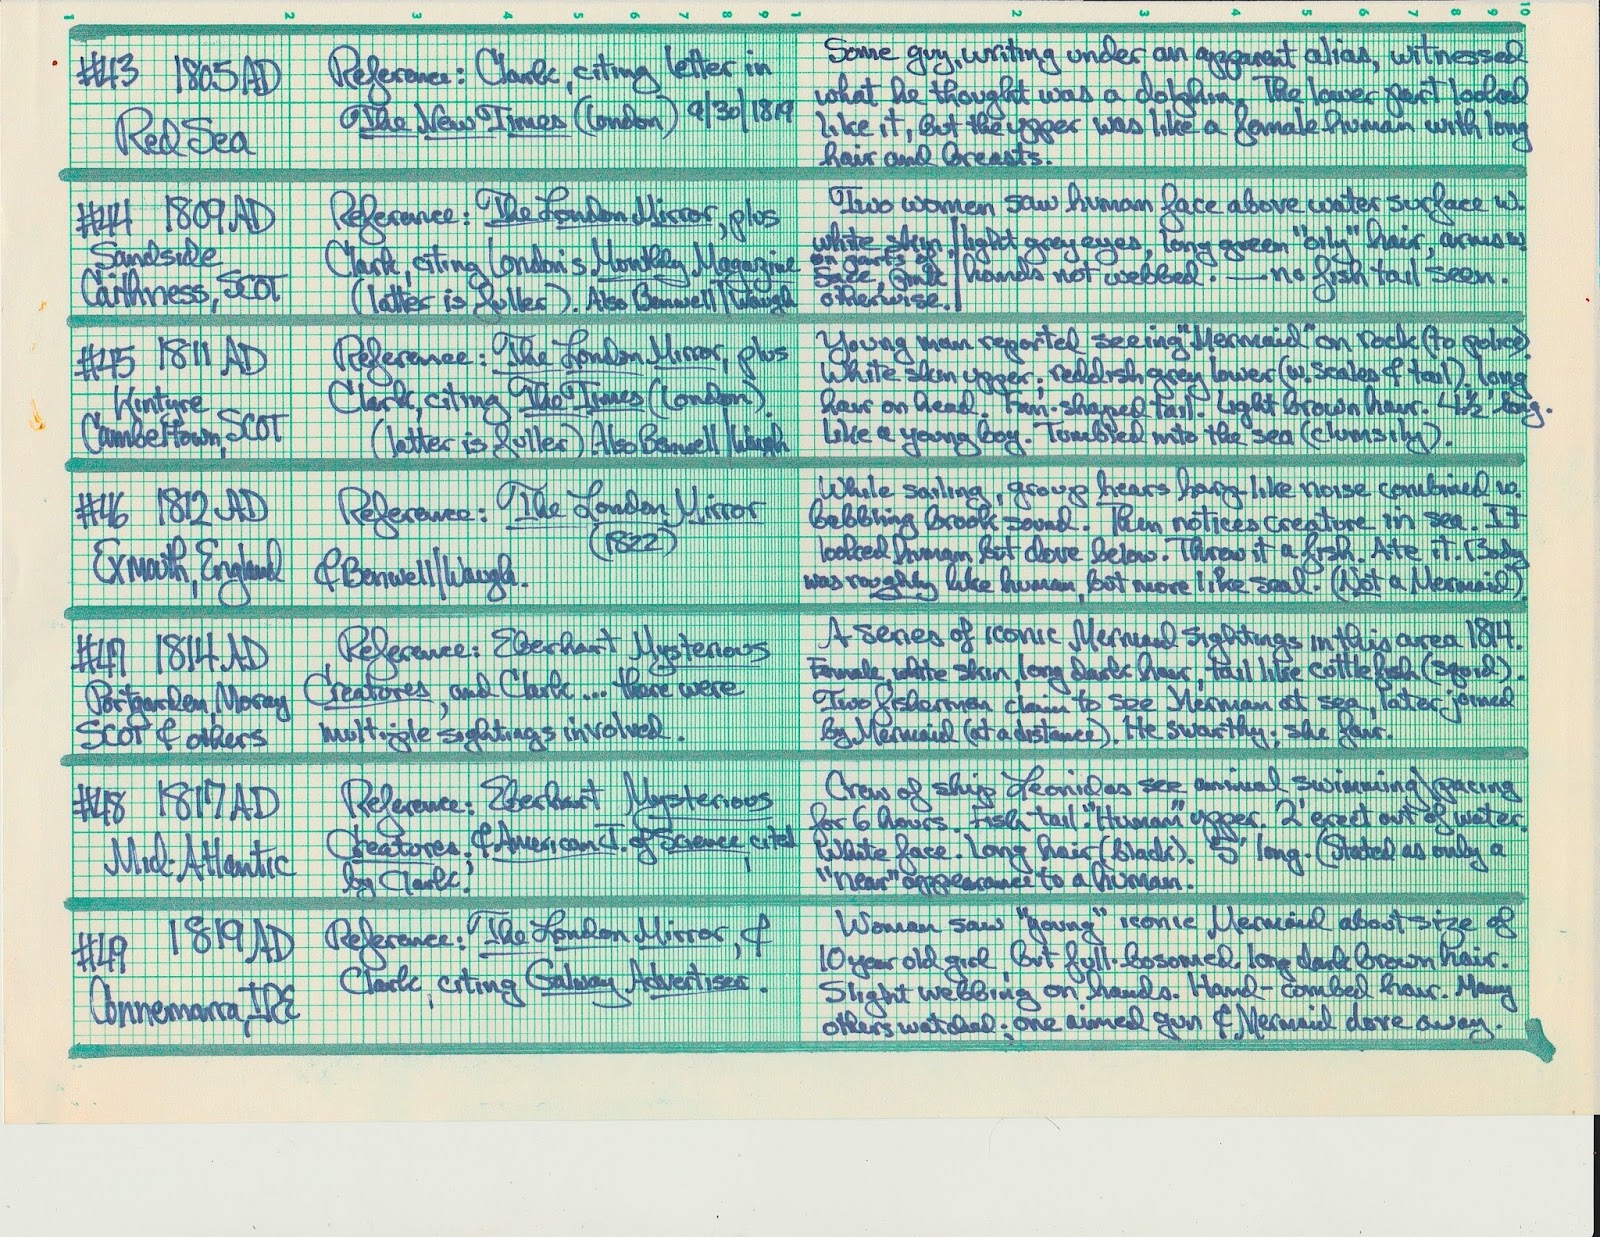 1 2 3 4 5 6 7 8 9 1 2 3 4 5 6 7 8 9 10
#43 1805 AD
Red Sea
Reference: Clark, citing letter in
The New Times (London) 9/30/1819
Some guy, writing under an apparent alias, witnessed
what he thought was a dolphin. The lower part looked
like it, but the upper was like a female human with long
hair and breasts.
#44 1809 AD
Sandside
Caithness, SCOT
Reference: The London Mirror, plus
Clark, citing London's Monthly Magazine
(latter is fuller). Also Benwell/Waugh
Two women saw human face above water surface w.
white skin / light grey eyes, long green "oily" hair, arms w.
on parts of
face, pink / hands not webbed. — no fish tail seen.
otherwise.
#45 1811 AD
Kintyre
Cambeltown, SCOT
Reference: The London Mirror, plus
Clark, citing The Times (London).
(latter is fuller) Also Benwell/Waugh
Young man reported seeing "Mermaid" on rock (to police).
White skin upper; reddish grey lower (w. scales & tail). Long
hair on head. Fan-shaped tail. Light brown hair. 4½' long.
Like a young boy. Tumbled into the sea (clumsily).
#46 1812 AD
Exmouth, England
Reference: The London Mirror
(1822)
& Benwell/Waugh.
While sailing, group hears harp-like noise combined w.
babbling brook sound. Then notices creature in sea. It
looked human but dove below. Threw it a fish. Ate it. Body
was roughly like human, but more like seal. (Not a Mermaid).
#47 1814 AD
Portgarden, Moray
SCOT & others
Reference: Eberhart Mysterious
Creatures, and Clark... there were
multiple sightings involved.
A series of iconic Mermaid sightings in this area 1814.
Female, white skin, long dark hair, tail like cuttlefish (squid).
Two fishermen claim to see Merman at sea, later joined
by Mermaid (at a distance). He swarthy; she fair.
#48 1817 AD
Mid-Atlantic
Reference: Eberhart Mysterious
Creatures, & American J. of Science, cited
by Clark.
Crew of ship Leonidas see animal swimming/pacing
for 6 hours. Fish tail. "Human" upper. 2' erect out of water.
White face. Long hair (black). 5' long. (Stated as only a
"near" appearance to a human.
#49 1819 AD
Connemarra, IRE
Reference: The London Mirror, &
Clark, citing Galway Advertiser.
Woman saw "young" iconic Mermaid about size of
10 year old girl, but full-bosomed, long dark brown hair.
Slight webbing on hands. Hand-combed hair. Many
others watched; one aimed gun & Mermaid dove away.